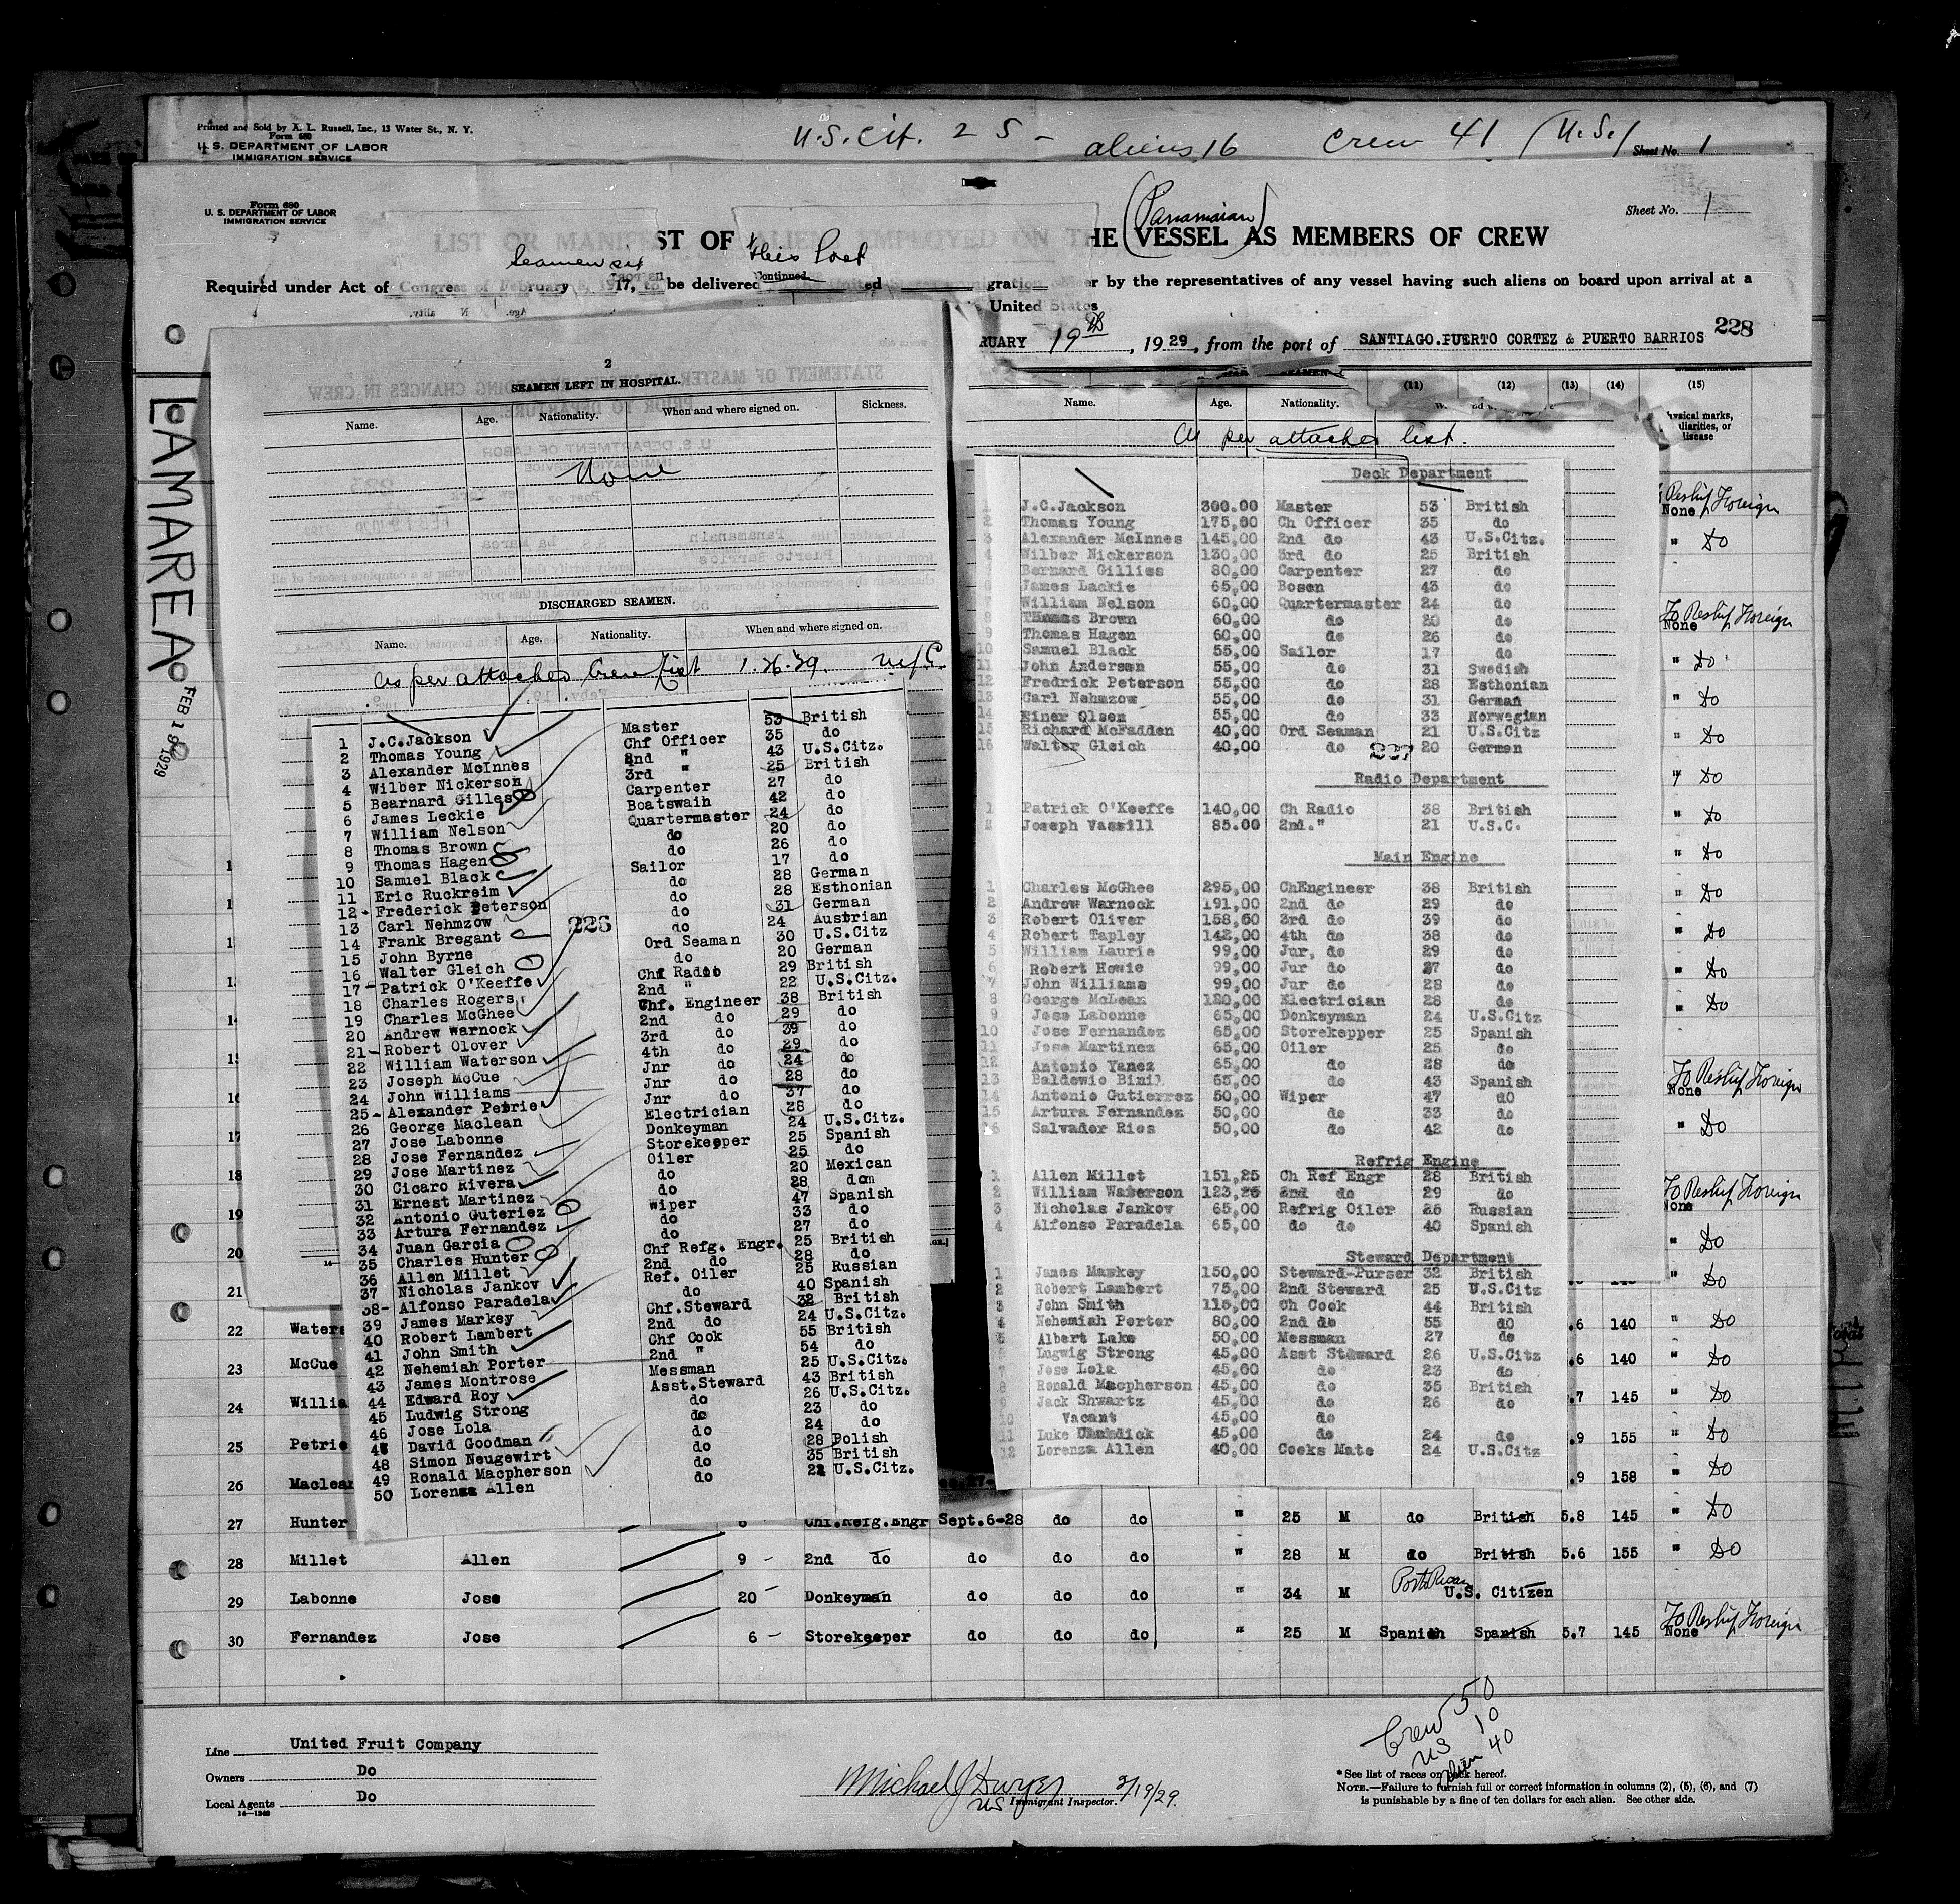 Printed and Sold by A. L. Russell, Inc., 13 Water St., N. Y.
Form 680
U. S. DEPARTMENT OF LABOR
IMMIGRATION SERVICE
U.S. Cit. 25 - aliens 16 Crew 41 (U.S.) Sheet No. 1
Form 680
U. S. DEPARTMENT OF LABOR
IMMIGRATION SERVICE
Sheet No. 1
(Panamaian)
ST OF HE VESSEL AS MEMBERS OF CREW
this Port
Continued
Required under Act of Congress of February 17, to be delivered by the representatives of any vessel having such aliens on board upon arrival at a
United States
RUARY 19th, 1929, from the port of SANTIAGO.PUERTO CORTEZ & PUERTO BARRIOS 228
LAMAREA
FEB 19 1929
2
SEAMEN LEFT IN HOSPITAL.
Name. Age. Nationality. When and where signed on. Sickness.
None
DISCHARGED SEAMEN.
Name. Age. Nationality. When and where signed on.
As per attached Crew List 1.26.29.
1 J.C.Jackson Master 53 British
2 Thomas Young Chf Officer 35 do
3 Alexander McInnes 2nd " 43 U.S.Citz.
4 Wilber Nickerson 3rd " 25 British
5 Bearnard Gilles Carpenter 27 do
6 James Leckie Boatswaih 42 do
7 William Nelson Quartermaster 24 do
8 Thomas Brown do 20 do
9 Thomas Hagen do 26 do
10 Samuel Black Sailor 17 do
11 Eric Ruckreim do 28 German
12 Frederick Peterson do 28 Esthonian
13 Carl Nehmzow do 31 German
14 Frank Bregant do 24 Austrian
15 John Byrne Ord Seaman 30 U.S.Citz
16 Walter Gleich do 20 German
17 Patrick O'Keeffe Chf Radio 29 British
18 Charles Rogers 2nd " 22 U.S.Citz.
19 Charles McGhee Chf. Engineer 38 British
20 Andrew Warnock 2nd do 29 do
21 Robert Olover 3rd do 39 do
22 William Waterson 4th do 29 do
23 Joseph McCue Jnr do 24 do
24 John Williams Jnr do 28 do
25 Alexander Petrie Jnr do 37 do
26 George Maclean Electrician 28 do
27 Jose Labonne Donkeyman 24 U.S.Citz.
28 Jose Fernandez Storekeeper 25 Spanish
29 Jose Martinez Oiler 25 do
30 Cicaro Rivera do 20 Mexican
31 Ernest Martinez do 28 dom
32 Antonio Guteriez Wiper 47 Spanish
33 Artura Fernandez do 33 do
34 Juan Garcia do 27 do
35 Charles Hunter Chf Refg. Engr. 25 British
36 Allen Millet 2nd do 28 do
37 Nicholas Jankov Ref. Oiler 25 Russian
38 Alfonso Paradela do 40 Spanish
39 James Markey Chf.Steward 32 British
40 Robert Lambert 2nd do 24 U.S.Citz.
41 John Smith Chf Cook 55 British
42 Nehemiah Porter 2nd " 54 do
43 James Montrose Messman 25 U.S.Citz.
44 Edward Roy Asst.Steward 43 British
45 Ludwig Strong do 26 U.S.Citz.
46 Jose Lola do 23 do
47 David Goodman do 24 do
48 Simon Neugewirt do 28 Polish
49 Ronald Macpherson do 35 British
50 Lorenza Allen do 22 U.S.Citz.
226
Name. Age. Nationality.
(11) (12) (13) (14) (15)
As per attached list.
Deck Department
1 J.C.Jackson 300.00 Master 53 British
2 Thomas Young 175,00 Ch Officer 35 do
3 Alexander McInnes 145,00 2nd do 43 U.S.Citz.
4 Wilber Nickerson 130,00 3rd do 25 British
Bernard Gillies 80,00 Carpenter 27 do
James Lackie 65,00 Bosen 43 do
William Nelson 60,00 Quartermaster 24 do
8 Thomas Brown 60,00 do 20 do
9 Thomas Hagen 60,00 do 26 do
10 Samuel Black 55,00 Sailor 17 do
11 John Anderson 55,00 do 31 Swedish
12 Fredrick Peterson 55,00 do 28 Esthonian
13 Carl Nehmzow 55,00 do 31 German
14 Einer Olsen 55,00 do 33 Norwegian
15 Richard McFadden 40,00 Ord Seaman 21 U.S.Citz
16 Walter Gleich 40,00 do 20 German
227
Radio Department
1 Patrick O'Keeffe 140,00 Ch Radio 38 British
2 Joseph Vassill 85.00 2nd." 21 U.S.C.
Main Engine
1 Charles McGhee 295,00 ChEngineer 38 British
2 Andrew Warnock 191,00 2nd do 29 do
3 Robert Oliver 158,00 3rd do 39 do
4 Robert Tapley 142,00 4th do 38 do
5 William Laurie 99,00 Jur, do 29 do
6 Robert Howie 99,00 Jur do 27 do
7 John Williams 99,00 Jur do 28 do
8 George McLean 120,00 Electrician 28 do
9 Jose Labonne 65,00 Donkeyman 24 U.S.Citz
10 Jose Fernandez 65,00 Storekepper 25 Spanish
11 Jose Martinez 65,00 Oiler 25 do
12 Antonio Yanez 65,00 do 28 do
13 Baldowie Binil 65,00 do 43 Spanish
14 Antonio Gutierrez 50,00 Wiper 47 dO
15 Artura Fernandez 50,00 do 33 do
16 Salvador Rios 50,00 do 42 do
Refrig Engine
1 Allen Millet 151,25 Ch Ref Engr 28 British
2 William Waterson 123,25 2nd do 29 do
3 Nicholas Jankov 65,00 Refrig Oiler 25 Russian
4 Alfonso Paradela 65,00 do do 40 Spanish
Steward Department
1 James Mawkey 150,00 Steward-Purser 32 British
2 Robert Lambert 75,00 2nd Steward 25 U.S.Citz
3 John Smith 115,00 Ch Cook 44 British
4 Nehemiah Porter 80,00 2nd do 55 dO
5 Albert Lake 50,00 Messman 27 do
6 Lugwig Strong 45,00 Asst Steward 26 U.S.Citz
7 Jose Lola 45,00 do 23 do
8 Ronald Macpherson 45,00 do 35 British
9 Jack Shwartz 45,00 do 26 do
10 Vacant 45,00 do
11 Luke 45,00 do 24 do
12 Lorenza Allen 40,00 Cooks Mate 24 U.S.Citz
To Reship Foreign
None
" Do
To Reship Foreign
None
" Do
" Do
" Do
" Do
" Do
" Do
" Do
" Do
" Do
" Do
To Reship Foreign
None
" Do
To Reship Foreign
None
" Do
" Do
17
18
19
20
21
22 Waters .6 140 " Do
23 McCue .6 140 " Do
24 Willia .7 145 " Do
25 Petrie .9 155 " Do
26 Maclean .9 158 " Do
27 Hunter 6 Chf.Refg.Engr Sept.6-28 do do " 25 M do British 5.8 145 " Do
28 Millet Allen 9 - 2nd do do do do " 28 M do British 5.6 155 " Do
29 Labonne Jose 20 - Donkeyman do do do " 34 M Porto Rican U.S. Citizen
30 Fernandez Jose 6 - Storekeeper do do do " 25 M Spanish Spanish 5.7 145 To Reship Foreign None
Crew 50
US 10
Alien 40
Line United Fruit Company
Owners Do
Local Agents Do
14-1240
Michael J Dwyer 2/19/29.
US Immigrant Inspector.
* See list of races on back hereof.
NOTE.—Failure to furnish full or correct information in columns (2), (5), (6), and (7)
is punishable by a fine of ten dollars for each alien. See other side.